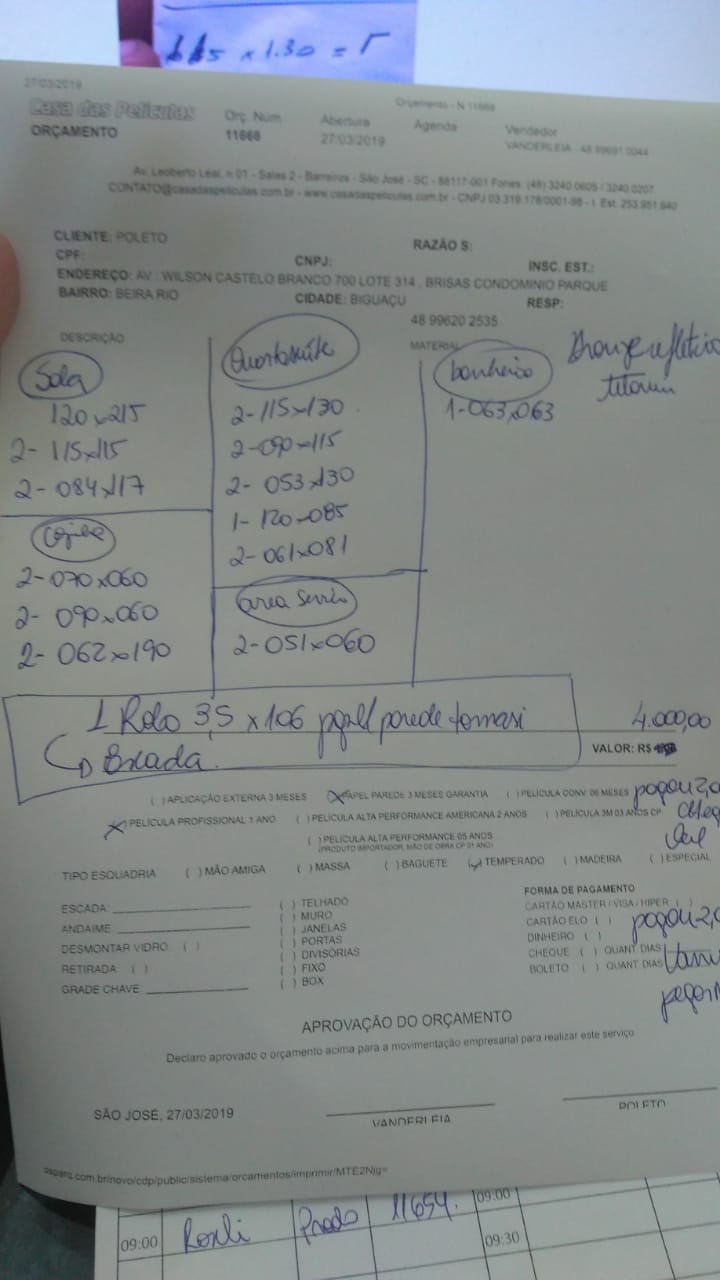 115 x 1.30 =
27/03/2019
Orçamento - N 11668
Casa das Películas
ORÇAMENTO
Orç. Núm
11668
Abertura
27/03/2019
Agenda
Vendedor
VANDERLEIA - 48 99691 0044
Av. Leoberto Leal, n 01 - Salas 2 - Barreiros - São José - SC - 88117-001 Fones: (48) 3240 0605 / 3240 0207
CONTATO@casadaspeliculas.com.br - www.casadaspeliculas.com.br - CNPJ 03.319.178/0001-98 - I. Est. 253.951.640
CLIENTE: POLETO
RAZÃO S:
CPF:
CNPJ:
INSC. EST.:
ENDEREÇO: AV : WILSON CASTELO BRANCO 700 LOTE 314 , BRISAS CONDOMINIO PARQUE
BAIRRO: BEIRA RIO
CIDADE: BIGUAÇU
RESP:
48 99620 2535
DESCRIÇÃO
MATERIAL
Sala
120x215
2- 115x115
2- 084x117
2-070x060
2- 090x060
2- 062x190
2-115x130
2-090x115
2- 053x130
1- 120x085
2- 061x081
area
2-051x060
banheiro
1-063x063
1 Rolo 3,5 x 106 papel parede
4.000,00
VALOR: R$
( ) APLICAÇÃO EXTERNA 3 MESES
PAPEL PAREDE 3 MESES GARANTIA
( ) PELÍCULA CONV. 06 MESES
pagou 2,0
PELÍCULA PROFISSIONAL 1 ANO
( ) PELÍCULA ALTA PERFORMANCE AMERICANA 2 ANOS
( ) PELÍCULA 3M 03 ANOS CP
( ) PELÍCULA ALTA PERFORMANCE 05 ANOS
(PRODUTO IMPORTADOR, MÃO DE OBRA CP 01 ANO)
TIPO ESQUADRIA
( ) MÃO AMIGA
( ) MASSA
( ) BAGUETE
TEMPERADO
( ) MADEIRA
( ) ESPECIAL
ESCADA:
ANDAIME:
DESMONTAR VIDRO ( )
RETIRADA ( )
GRADE CHAVE
( ) TELHADO
( ) MURO
( ) JANELAS
( ) PORTAS
( ) DIVISÓRIAS
( ) FIXO
( ) BOX
FORMA DE PAGAMENTO
CARTÃO MASTER / VISA / HIPER ( )
CARTÃO ELO ( )
DINHEIRO ( )
CHEQUE ( ) QUANT DIAS
BOLETO ( ) QUANT DIAS
pagou 2,0
APROVAÇÃO DO ORÇAMENTO
Declaro aprovado o orçamento acima para a movimentação empresarial para realizar este serviço
SÃO JOSÉ, 27/03/2019
VANDERLEIA
POLETO
osparq.com.br/novo/cdp/public/sistema/orcamentos/imprimir/MTE2Njg=
09:00
11654.
09:00
09:30